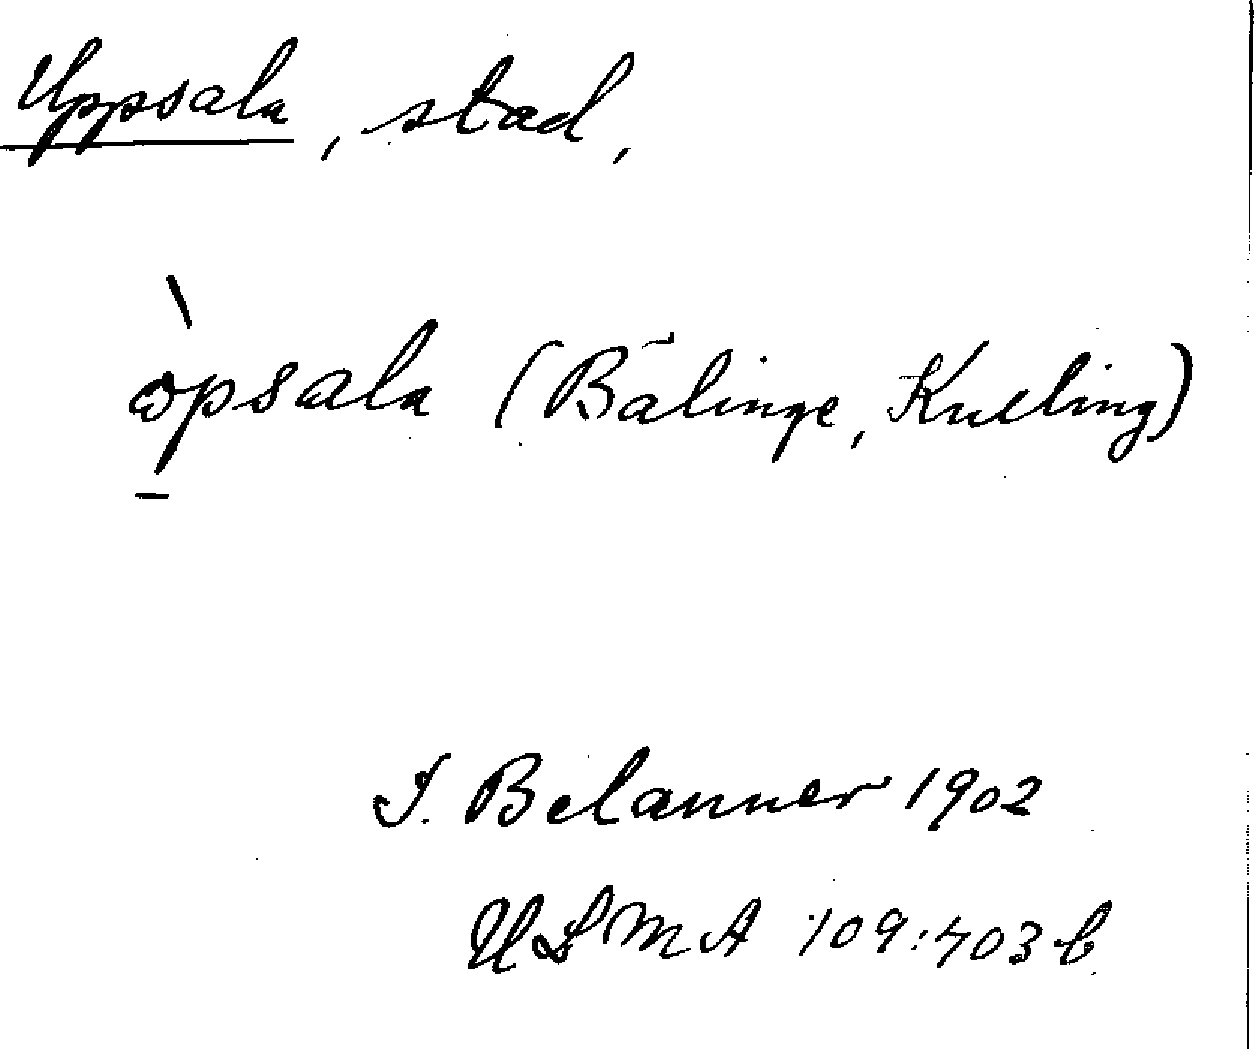 Uppsala, stad,
òpsala (Bälinge, Kulling)
J. Belanner 1902
ULMA 109:403 b